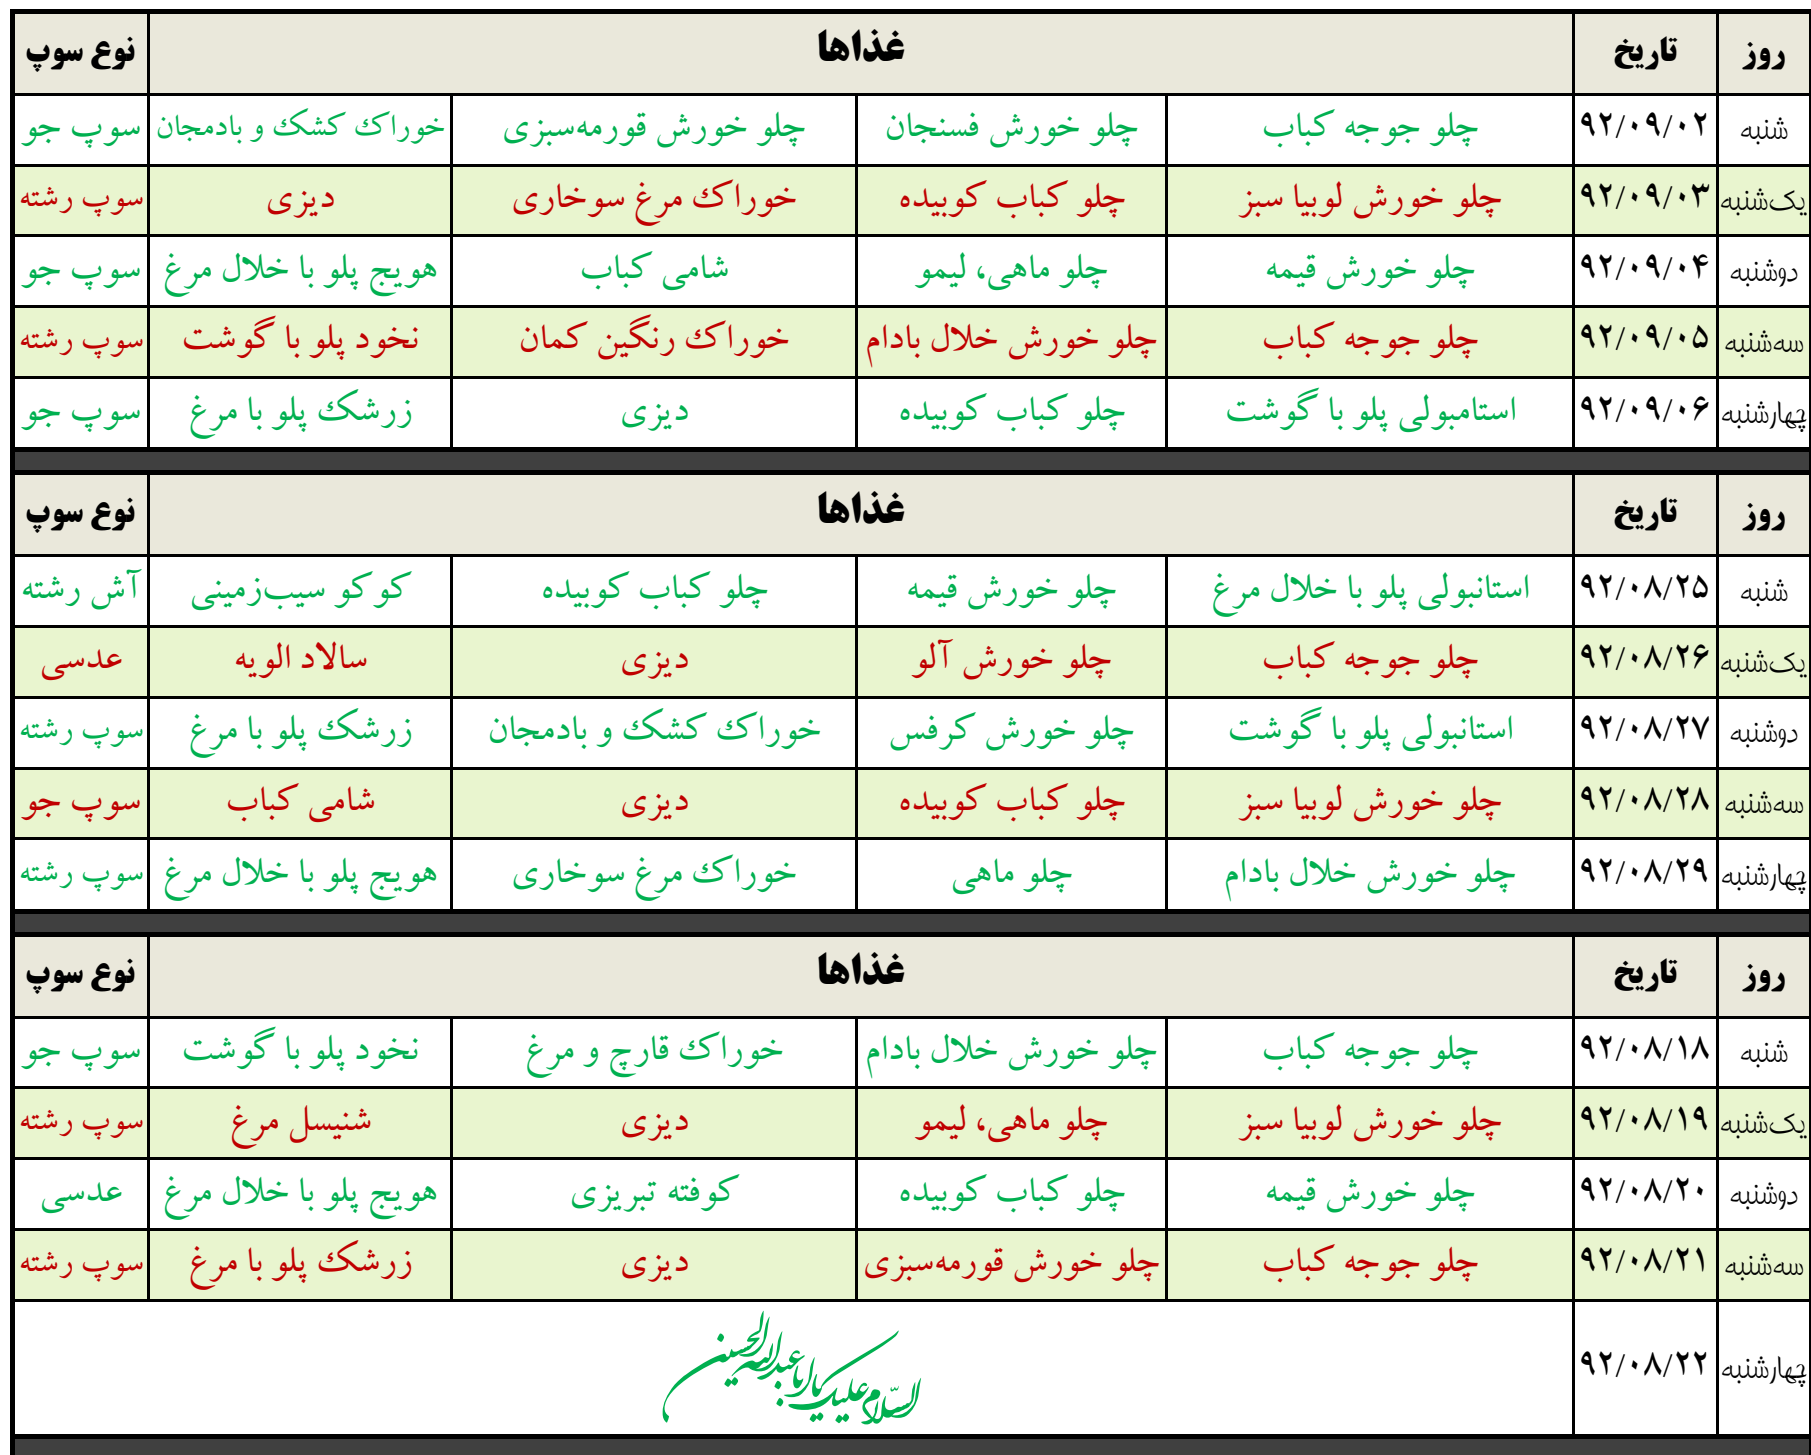 روز تاریخ غذاها نوع سوپ
شنبه ۹۲/۰۹/۰۲ چلو جوجه کباب چلو خورش فسنجان چلو خورش قورمه‌سبزی خوراک کشک و بادمجان سوپ جو
یک‌شنبه ۹۲/۰۹/۰۳ چلو خورش لوبیا سبز چلو کباب کوبیده خوراک مرغ سوخاری دیزی سوپ رشته
دوشنبه ۹۲/۰۹/۰۴ چلو خورش قیمه چلو ماهی، لیمو شامی کباب هویج پلو با خلال مرغ سوپ جو
سه‌شنبه ۹۲/۰۹/۰۵ چلو جوجه کباب چلو خورش خلال بادام خوراک رنگین کمان نخود پلو با گوشت سوپ رشته
چهارشنبه ۹۲/۰۹/۰۶ استامبولی پلو با گوشت چلو کباب کوبیده دیزی زرشک پلو با مرغ سوپ جو
روز تاریخ غذاها نوع سوپ
شنبه ۹۲/۰۸/۲۵ استانبولی پلو با خلال مرغ چلو خورش قیمه چلو کباب کوبیده کوکو سیب‌زمینی آش رشته
یک‌شنبه ۹۲/۰۸/۲۶ چلو جوجه کباب چلو خورش آلو دیزی سالاد الویه عدسی
دوشنبه ۹۲/۰۸/۲۷ استانبولی پلو با گوشت چلو خورش کرفس خوراک کشک و بادمجان زرشک پلو با مرغ سوپ رشته
سه‌شنبه ۹۲/۰۸/۲۸ چلو خورش لوبیا سبز چلو کباب کوبیده دیزی شامی کباب سوپ جو
چهارشنبه ۹۲/۰۸/۲۹ چلو خورش خلال بادام چلو ماهی خوراک مرغ سوخاری هویج پلو با خلال مرغ سوپ رشته
روز تاریخ غذاها نوع سوپ
شنبه ۹۲/۰۸/۱۸ چلو جوجه کباب چلو خورش خلال بادام خوراک قارچ و مرغ نخود پلو با گوشت سوپ جو
یک‌شنبه ۹۲/۰۸/۱۹ چلو خورش لوبیا سبز چلو ماهی، لیمو دیزی شنیسل مرغ سوپ رشته
دوشنبه ۹۲/۰۸/۲۰ چلو خورش قیمه چلو کباب کوبیده کوفته تبریزی هویج پلو با خلال مرغ عدسی
سه‌شنبه ۹۲/۰۸/۲۱ چلو جوجه کباب چلو خورش قورمه‌سبزی دیزی زرشک پلو با مرغ سوپ رشته
چهارشنبه ۹۲/۰۸/۲۲ السّلام علیک یا اباعبدالله الحسین